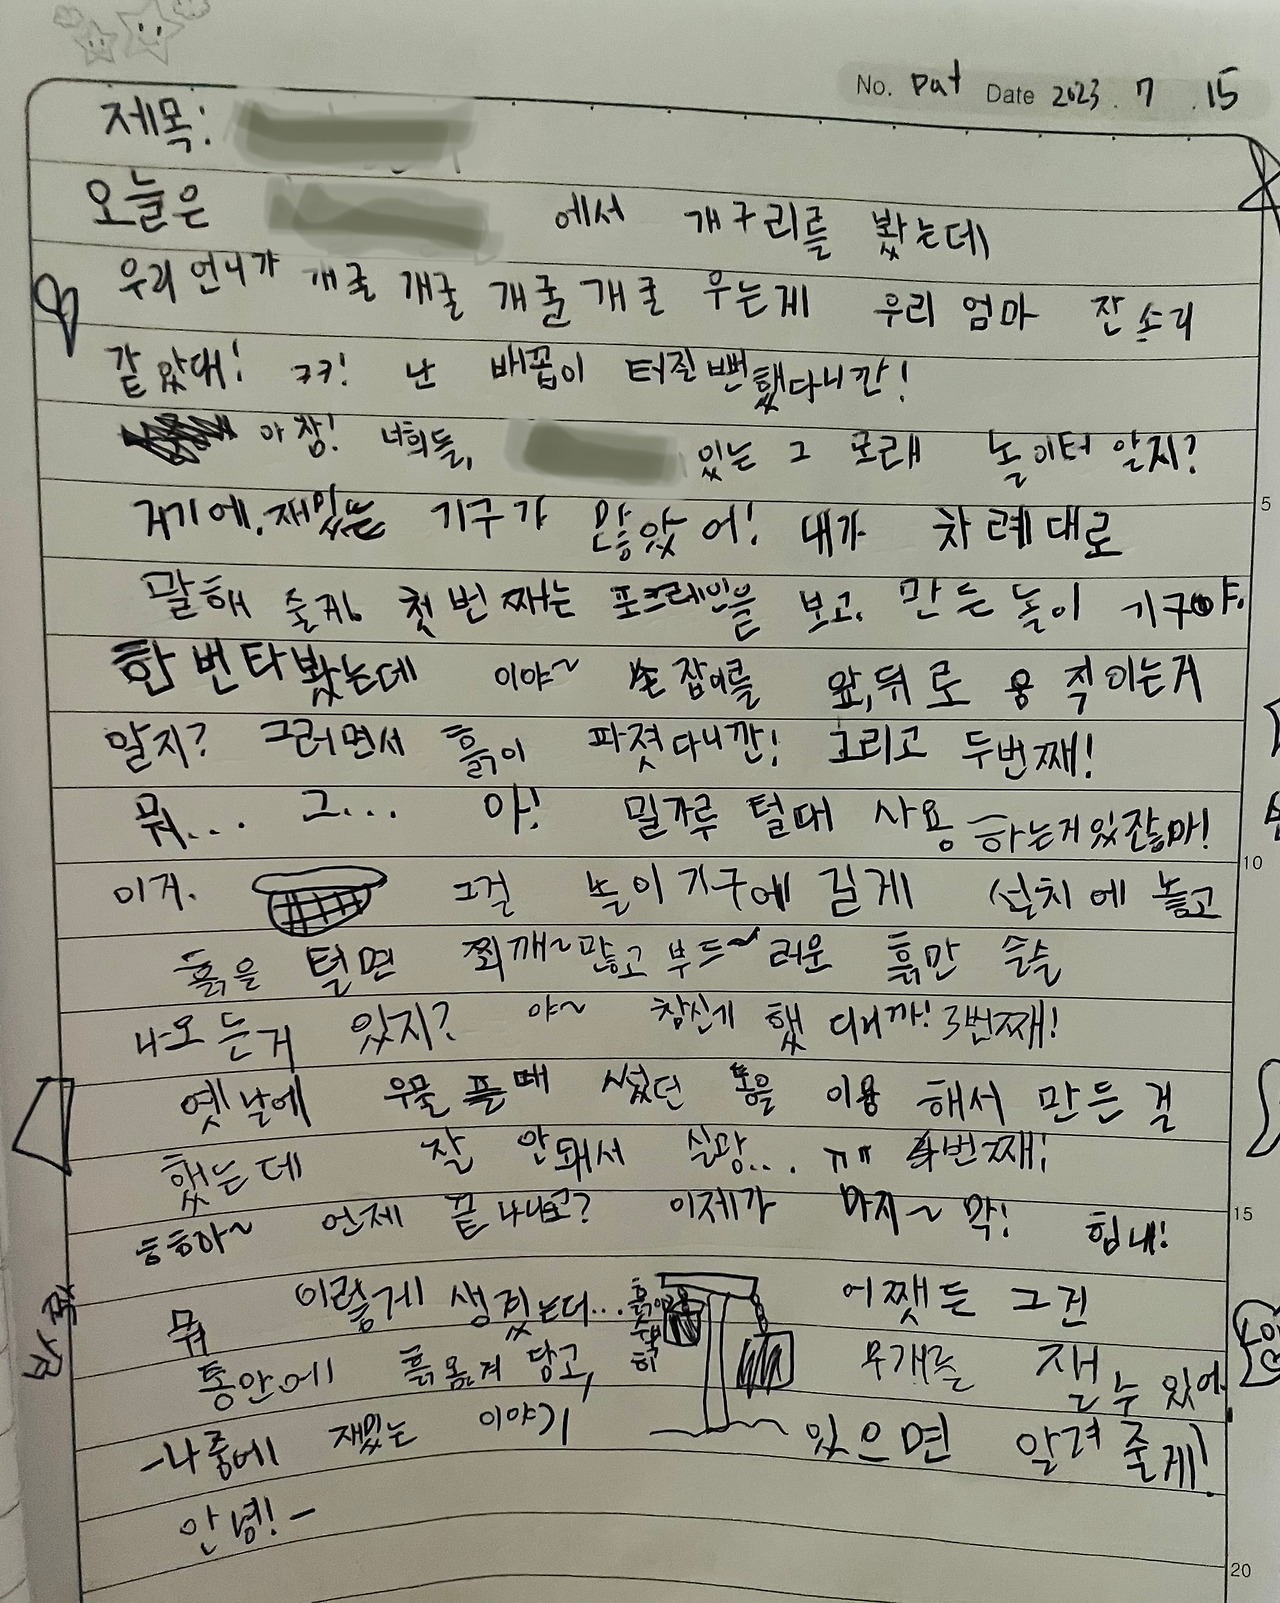 No. Dat Date 2023. 7. 15
제목:
오늘은 에서 개구리를 봤는데,
우리 언니가 개굴 개굴 개굴 개굴 우는게 우리 엄마 잔소리
같았대! ㅋㅋ! 난 배꼽이 터질뻔 했다니깐!
아참! 너희들, 있는 그 모래 놀이터 알지?
거기에, 재밌는 기구가 많았어! 내가 차례대로
말해 줄게, 첫번째는 포크레인을 보고, 만든 놀이 기구야.
한번타봤는데 이야~ 손잡이를 앞,뒤로 움직이는거
알지? 그러면서 흙이 파졌다니깐! 그리고 두번째!
뭐... 그... 아! 밀가루 털때 사용 하는거있잖아!
이거. 그걸 놀이기구에 길게 설치에 놓고
흙을 털면 찌깨~많고 부드~러운 흙만 슬슬
나오는거 있지? 야~ 참신기 했다니까! 3번째!
옛날에 우물 플때 썼던 통을 이용해서 만든걸
했는데 잘 안돼서 실망... ㅠㅠ 4번째!
흐흐아~ 언제 끝나냐고? 이제가 마지~막! 힘내!
뭐 이렇게 생깄는데... 어쨋든 그건
통안에 흙옮겨 담고, 무개를 잴수있어
-나중에 재밌는 이야기 있으면 알려줄게!
안녕!-
5
10
15
20